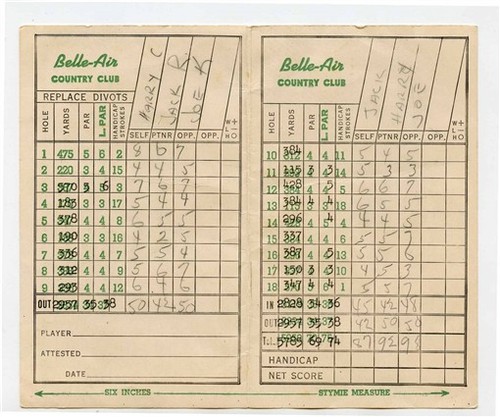 Belle-Air
COUNTRY CLUB
REPLACE DIVOTS
HARRY C
JACK R.
JOE K
HOLE YARDS PAR L. PAR HANDICAP STROKES SELF PTNR OPP. OPP.
1 475 5 6 2 8 6 7
2 220 3 4 15 4 4 5
3 5 6 3 7 6 7
4 3 3 17 5 4 4
5 378 4 4 8 6 5 5
6 190 3 3 16 4 2 5
7 336 4 4 10 5 5 4
8 312 4 4 9 5 6 7
9 295 4 4 12 6 4 6
OUT 2957 35 38 50 42 50
PLAYER
ATTESTED
DATE
SIX INCHES
Belle-Air
COUNTRY CLUB
JACK
HARRY
JOE
HOLE YARDS PAR L. PAR HANDICAP STROKES SELF PTNR OPP. OPP.
10 384 4 4 11 5 4 5
11 115 3 3 14 5 3 3
12 428 5 6 6 7
13 384 4 4 18 5 4 5
14 296 4 4 4 5
15 337 5 5 7
16 387 5 5 5 6
17 150 3 3 4 5 3
18 347 4 4 1 5 5 7
IN 2828 34 36 45 42 48
OUT 2957 35 38 42 50 50
TLL. 5785 69 74 87 92 98
HANDICAP
NET SCORE
STYMIE MEASURE